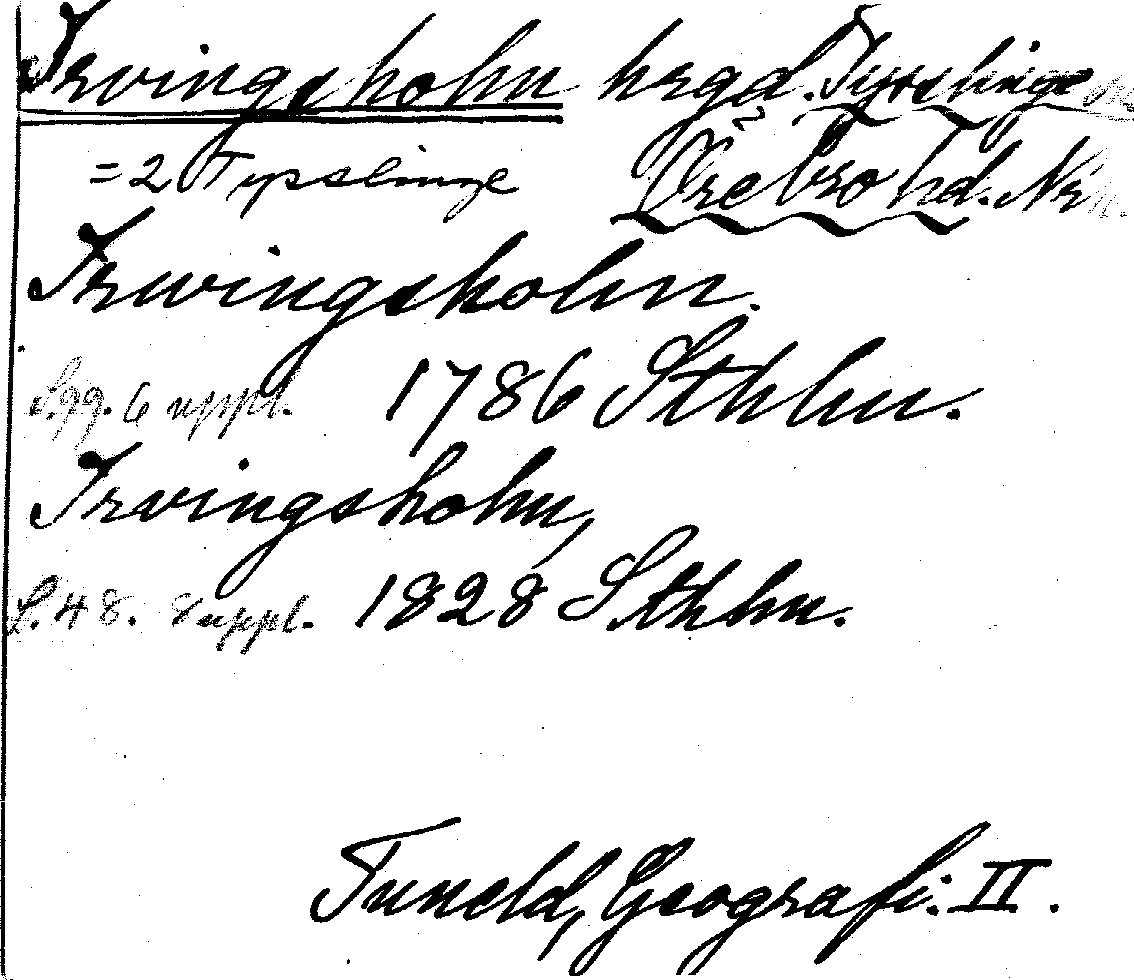 Irvingsholm hrgd. Tysslinge
= 2 Typslinge Örebro hd. Nr
Irwingsholm.
S. 99. 6 uppl. 1786 Sthlm.
Irvingsholm,
S. 48. 8 uppl. 1828 Sthlm.
Tuneld, Geografi. II.